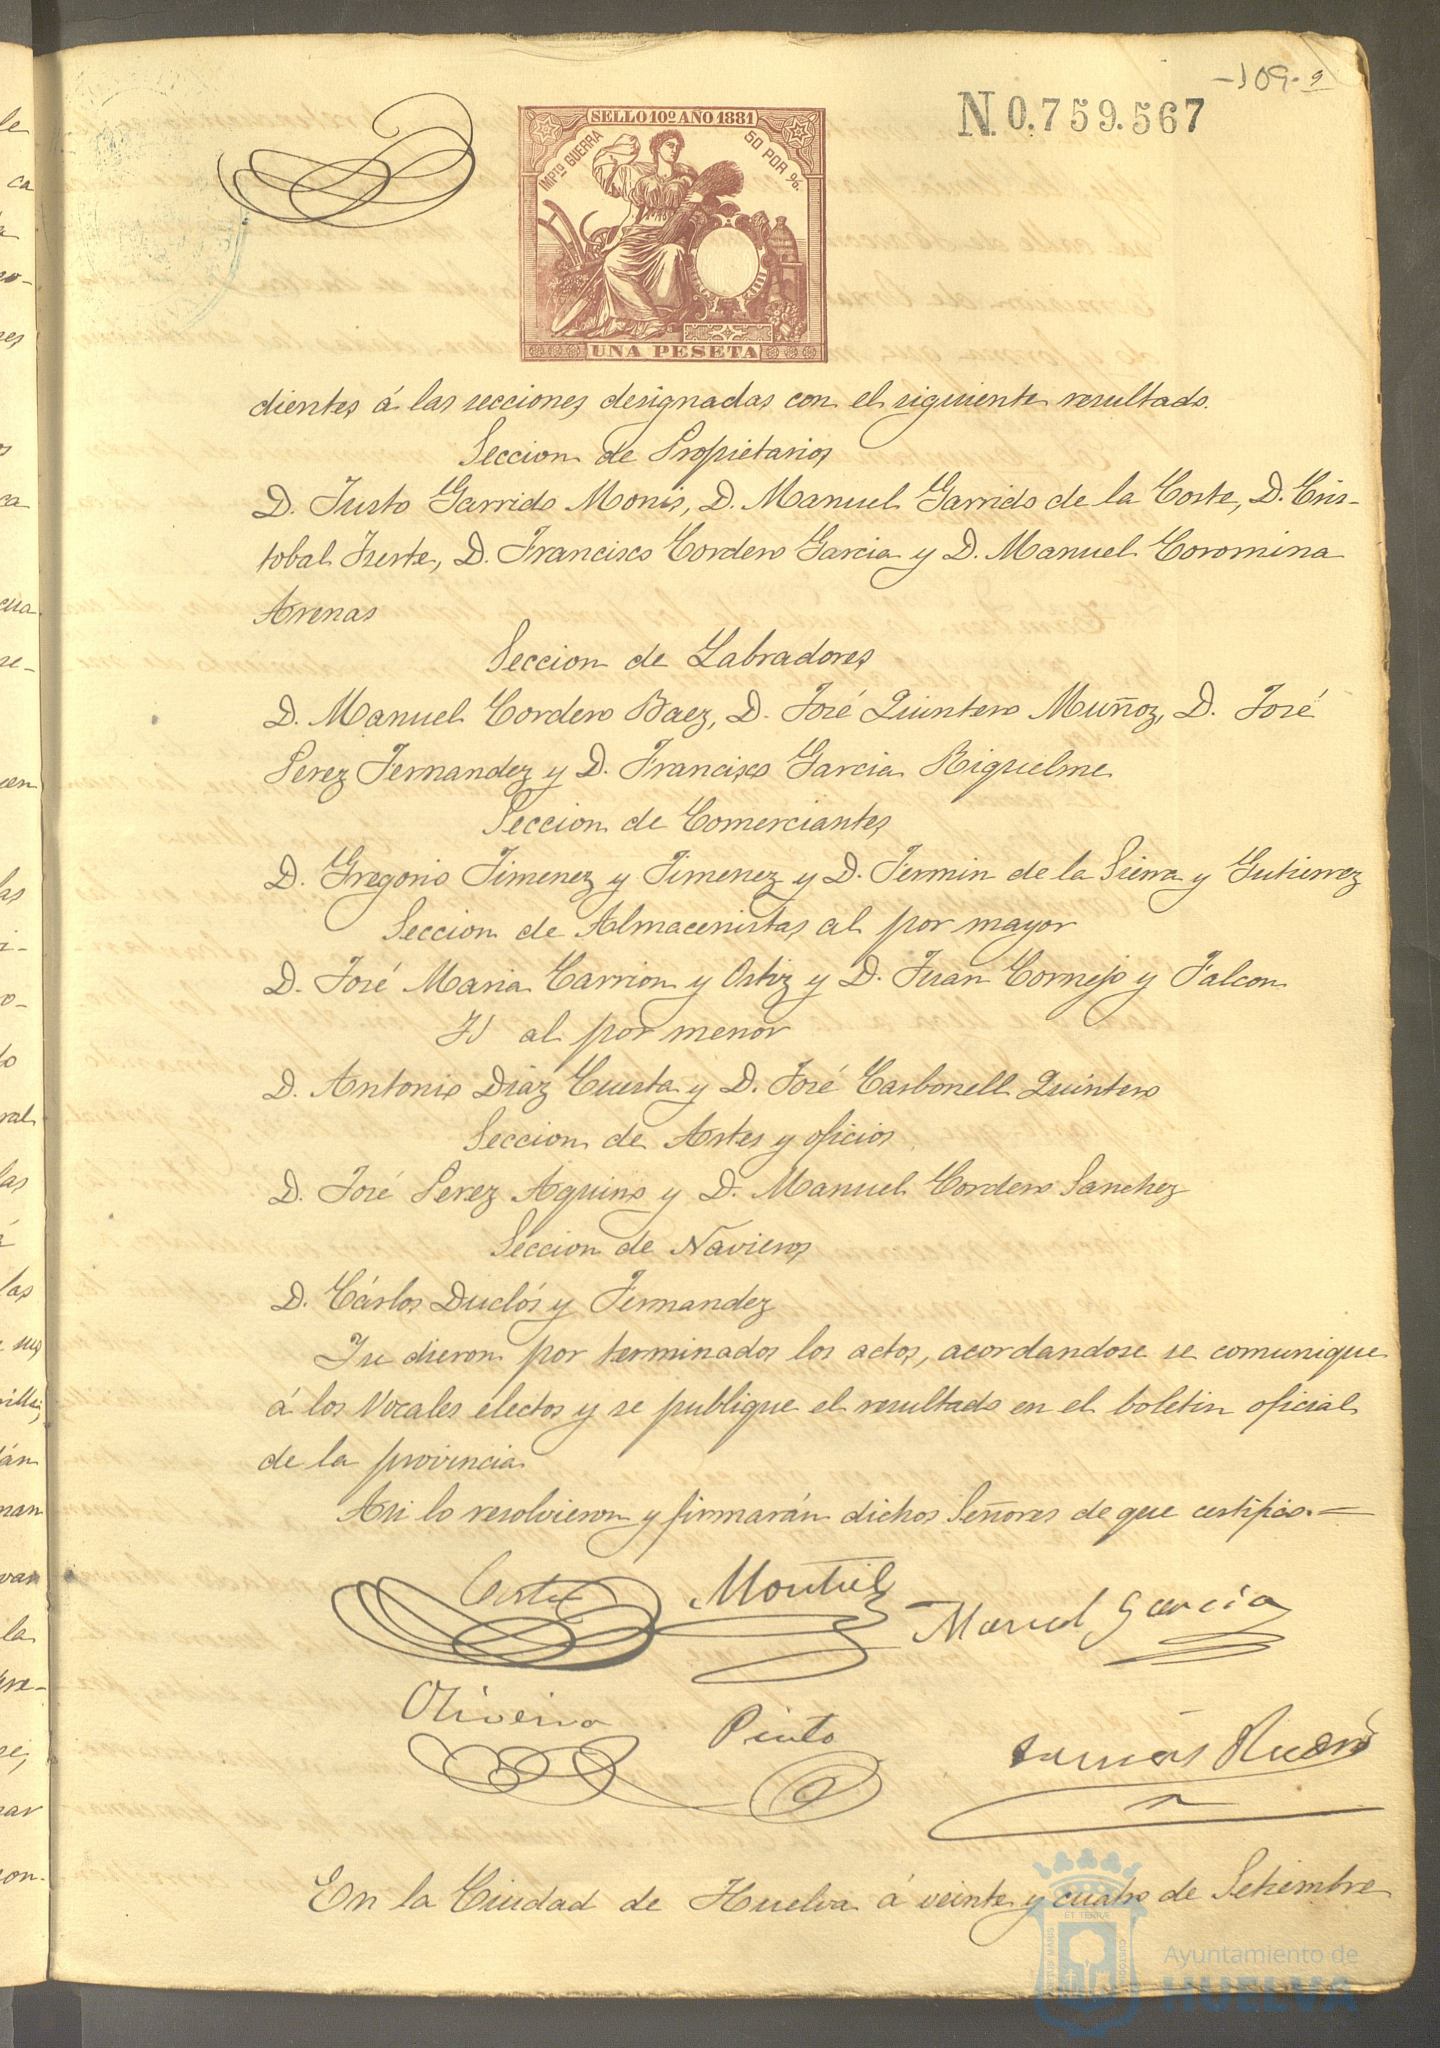 -109- 9
N. 0.759.567
SELLO 10º AÑO 1881
IMPtº GUERRA
50 POR %.
UNA PESETA
dientes á las secciones designadas con el siguiente resultado.
Seccion de Propietarios
D. Justo Garrido Monis, D. Manuel Garrido de la Corte, D. Cris-
tobal Iuste, D. Francisco Cordero Garcia y D. Manuel Coromina
Arenas
Seccion de Labradores
D. Manuel Cordero Baez, D. José Quintero Muñoz, D. José
Perez Fernandez y D. Francisco Garcia Riquelme
Seccion de Comerciantes
D. Gregorio Jimenez y Jimenez y D. Fermin de la Sierra y Gutierrez
Seccion de Almacenistas al por mayor
D. José Maria Carrion y Ortiz y D. Juan Cornejo y Falcon
Id al por menor
D. Antonio Diaz Cuesta y D. José Carbonell Quintero
Seccion de Artes y oficios
D. José Perez Aquino y D. Manuel Cordero Sanchez
Seccion de Navieros
D. Cárlos Duclós y Fernandez
Se dieron por terminados los actos, acordandose se comunique
á los Vocales electos y se publique el resultado en el boletin oficial
de la provincia.
Asi lo resolvieron y firmarán dichos Señores de que certifico.=
Corte Montiel Manuel Garcia
Oliveira Pinto Tomás
En la Ciudad de Huelva á veinte y cuatro de Setiembre
Ayuntamiento de
HUELVA